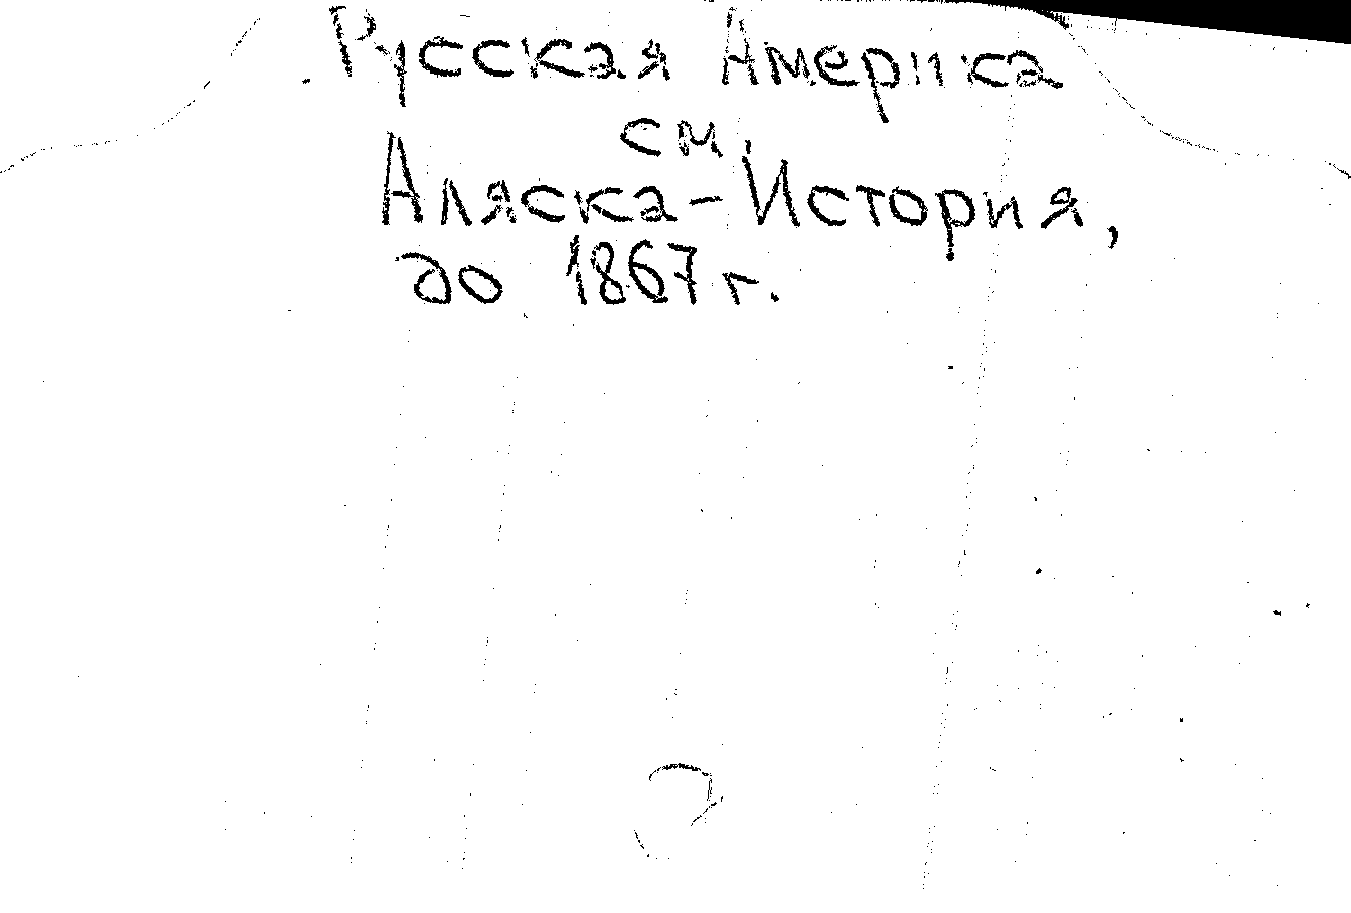 Русская Америка
см.
Аляска - История,
до 1867 г.